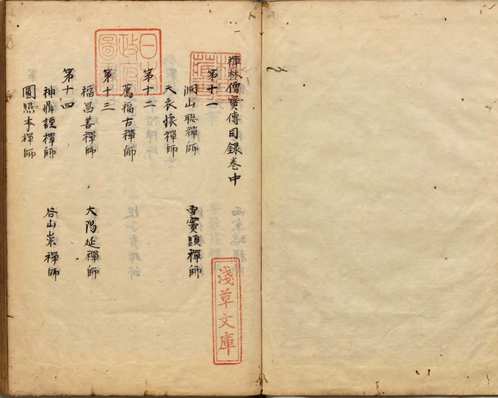 禪林僧寳傳目録巻中
第十一
洞山聡禪師 雪竇顕禪師
天衣懐禪師
第十二
薦福古禪師
第十三
福昌善禪師 大陽延禪師
第十四
神鼎諲禪師 谷山崇禪師
圓照本禪師
日本政府圖書
淺草文庫